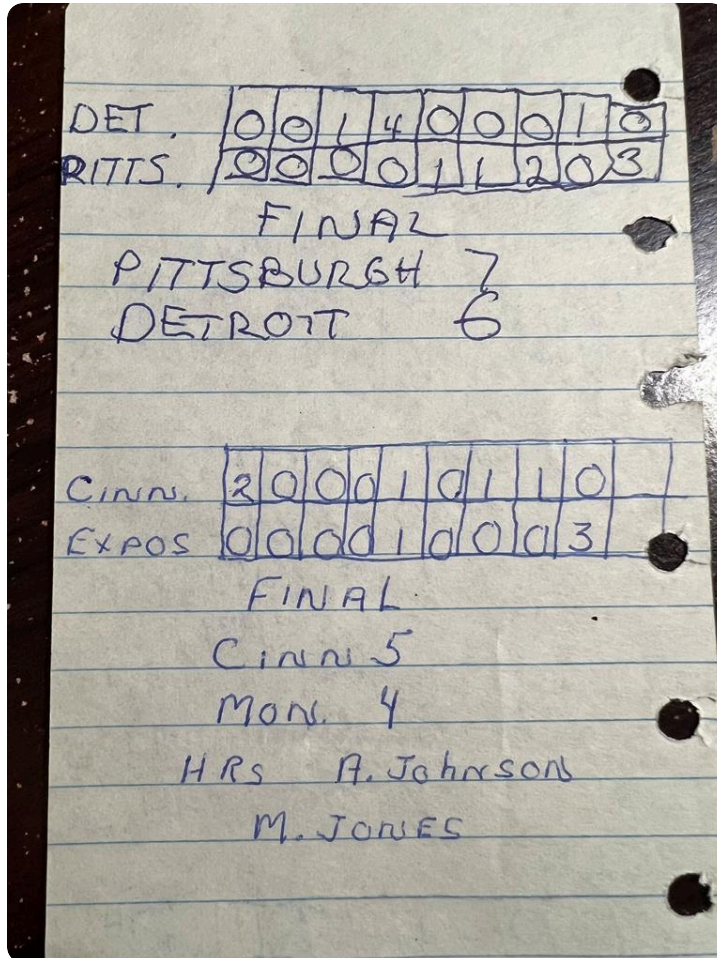 DET. 0 0 1 4 0 0 0 1 0
PITTS. 0 0 0 0 1 1 2 0 3
FINAL
PITTSBURGH 7
DETROIT 6
CINN. 2 0 0 0 1 0 1 1 0
EXPOS 0 0 0 0 1 0 0 0 3
FINAL
CINN 5
MON. 4
HRs A. Johnson
M. JONES